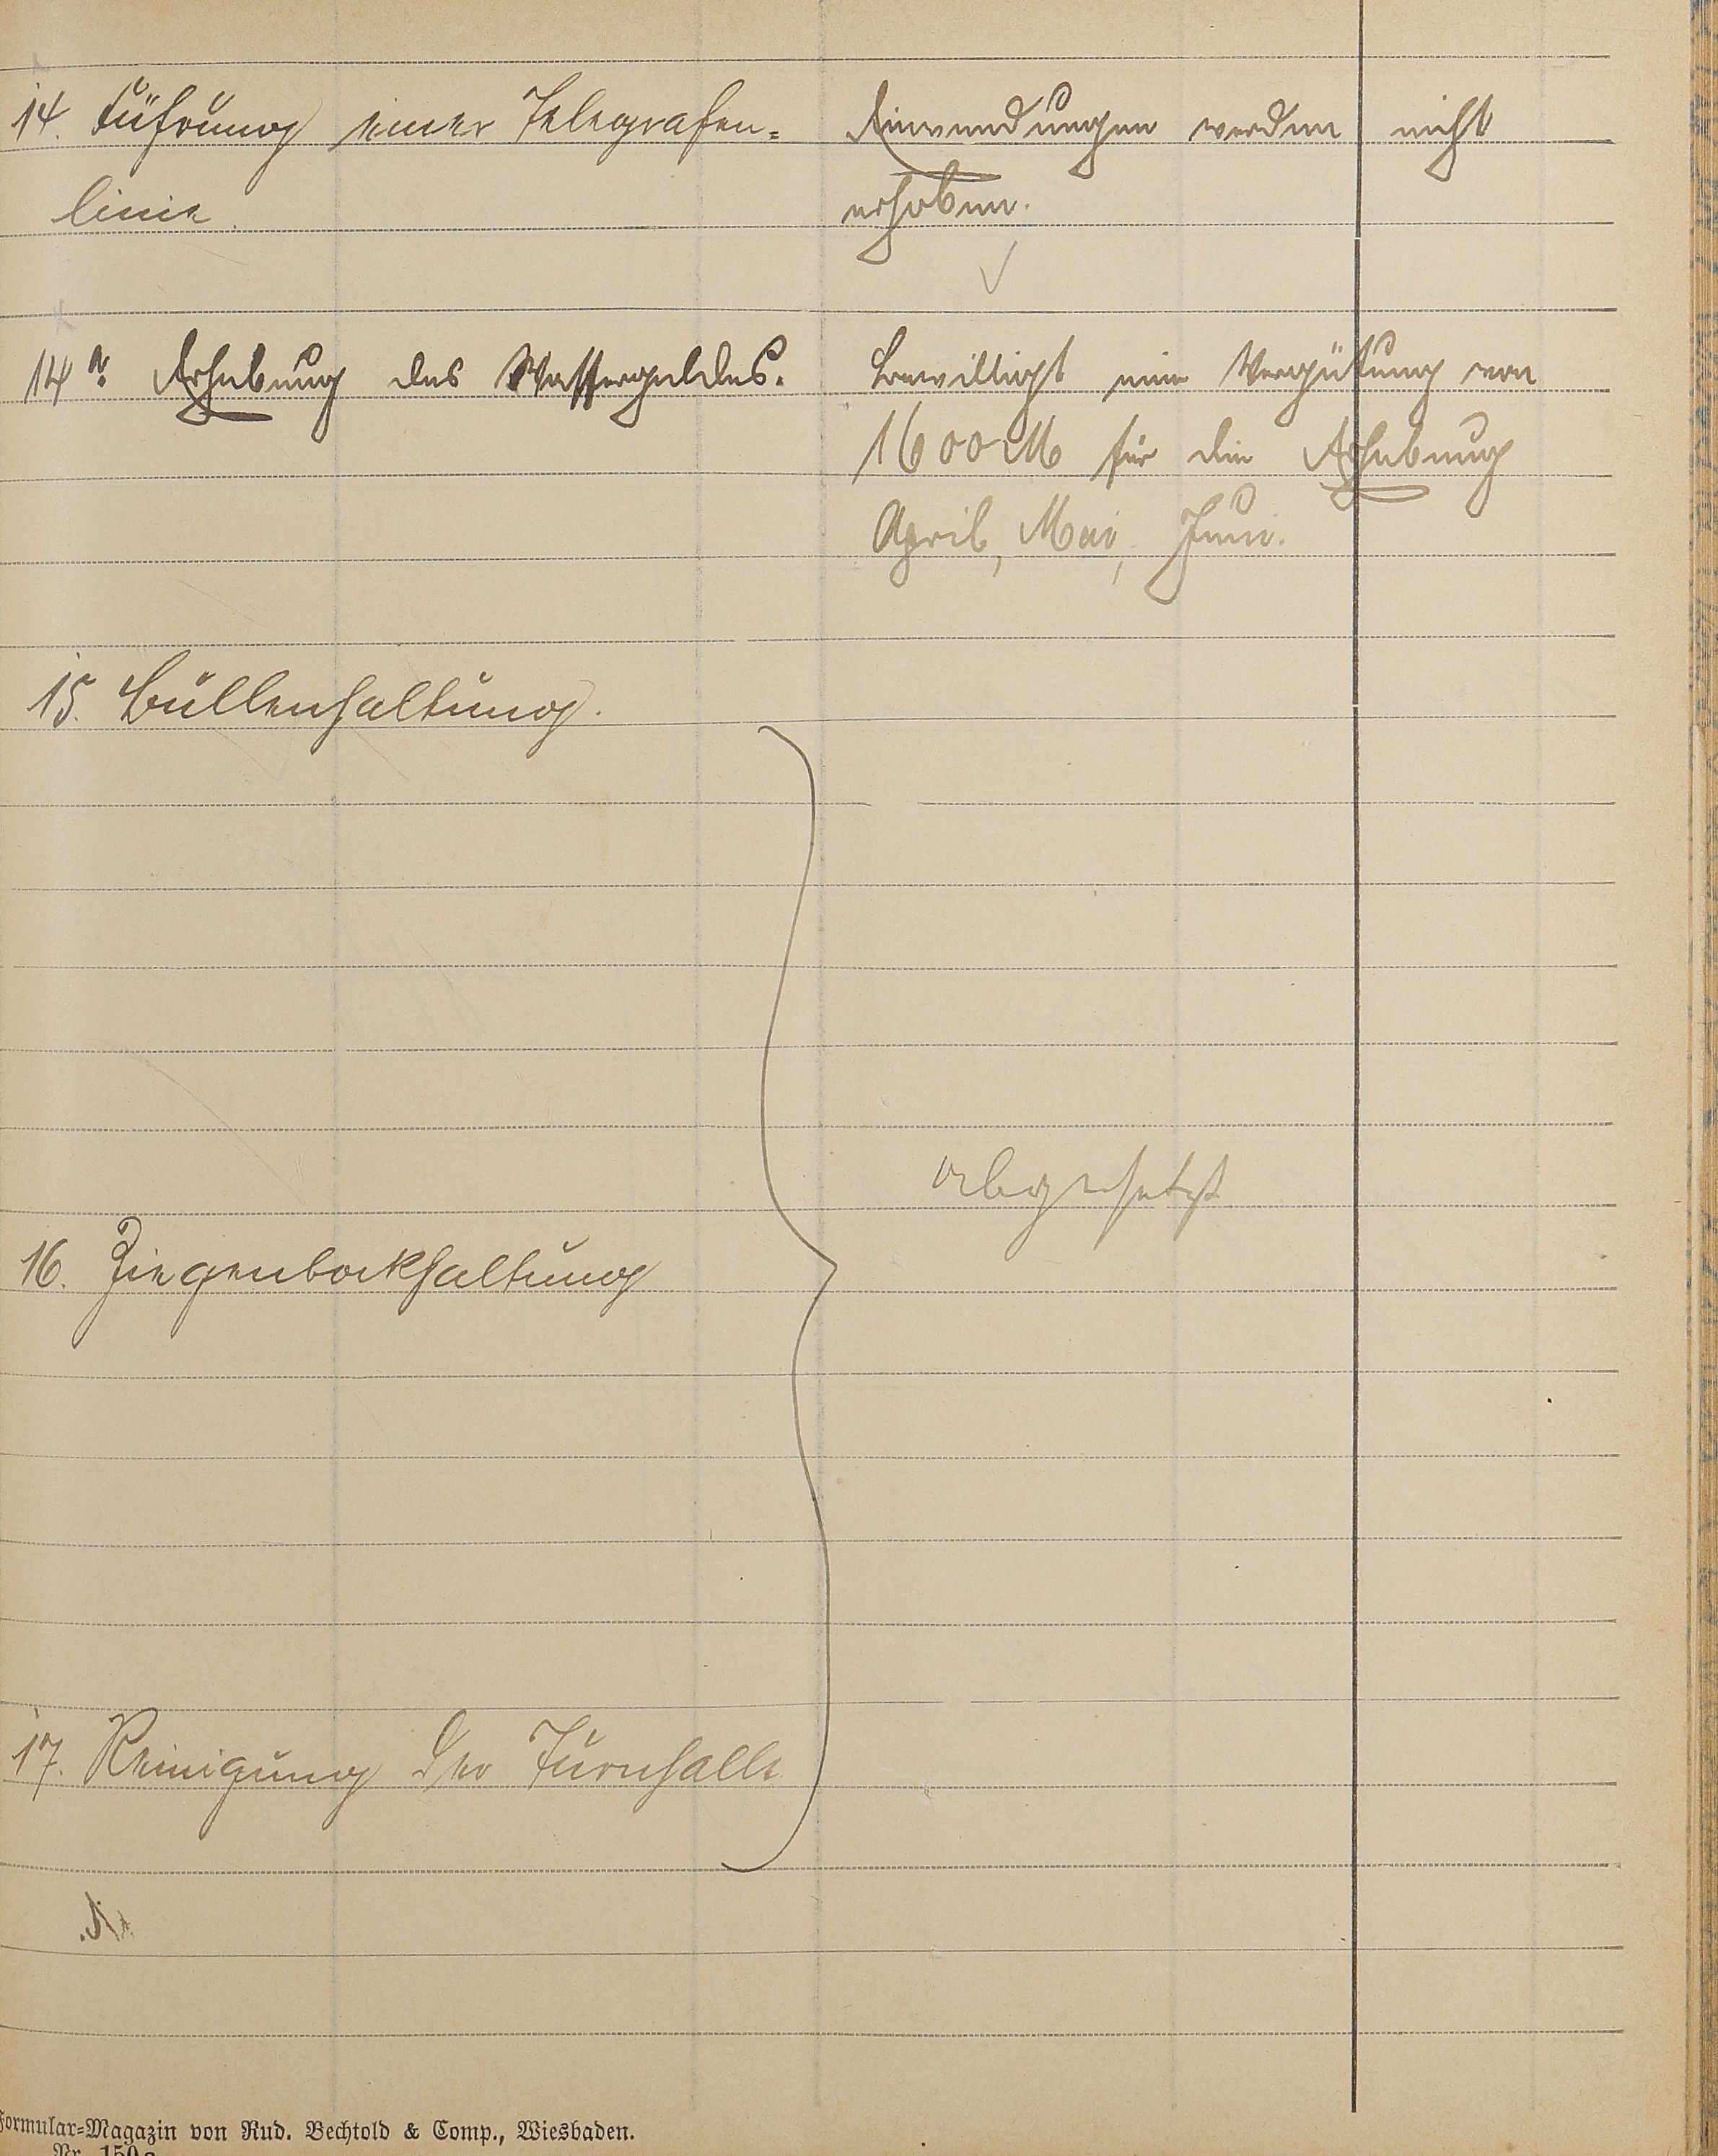 14. Führung einer Telegrafen=
linie.
Einwendungen werden nicht
erhoben.
14a. Erhebung des Wassergeldes.
Bewilligt eine Vergütung von
1600 M für die Erhebung
April, Mai, Juni.
15. Bullenhaltung.
abgesetzt
16. Ziegenbockhaltung
17. Reinigung der Turnhalle
Formular=Magazin von Rud. Bechtold & Comp., Wiesbaden.
Nr. 150